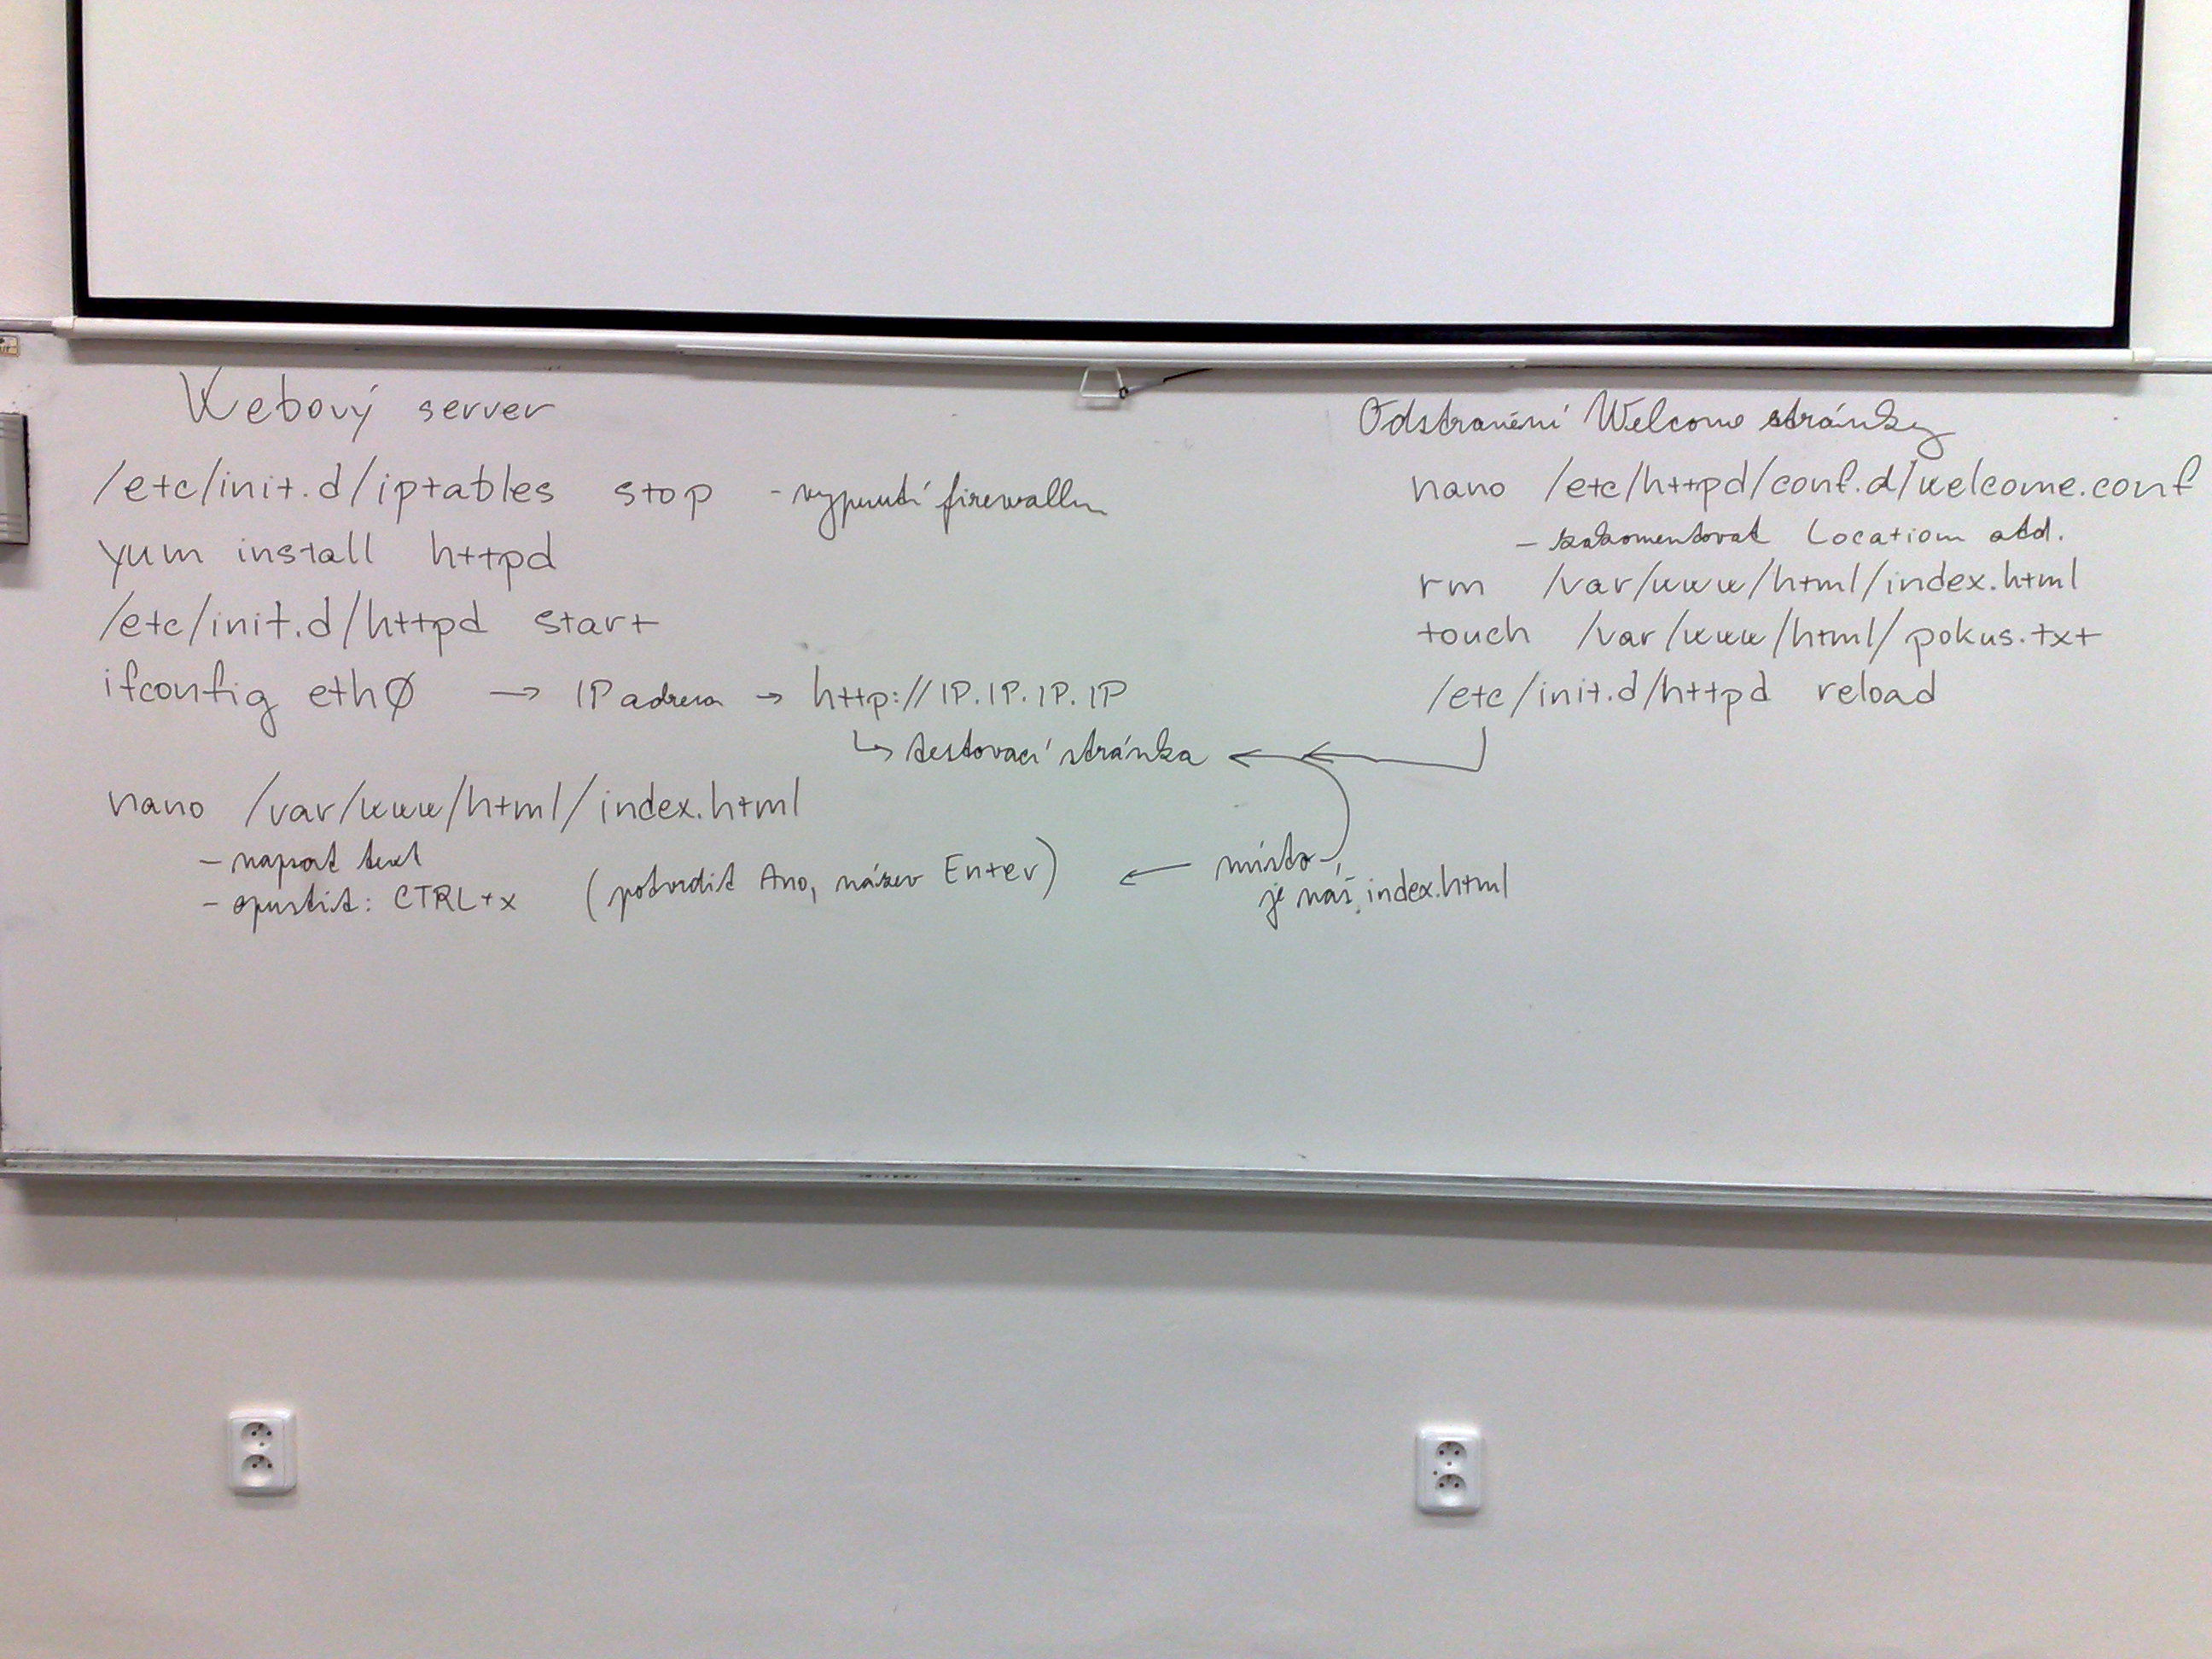 Webový server
/etc/init.d/iptables stop - vypnutí firewallu
yum install httpd
/etc/init.d/httpd start
ifconfig eth0 → IP adresa → http://IP.IP.IP.IP
↳ testovací stránka
nano /var/www/html/index.html
- napsat text
- opustit: CTRL+x (potvrdit Ano, název Enter) ← místo
je náš index.html
Odstranění Welcome stránky
nano /etc/httpd/conf.d/welcome.conf
- zakomentovat Location atd.
rm /var/www/html/index.html
touch /var/www/html/pokus.txt
/etc/init.d/httpd reload